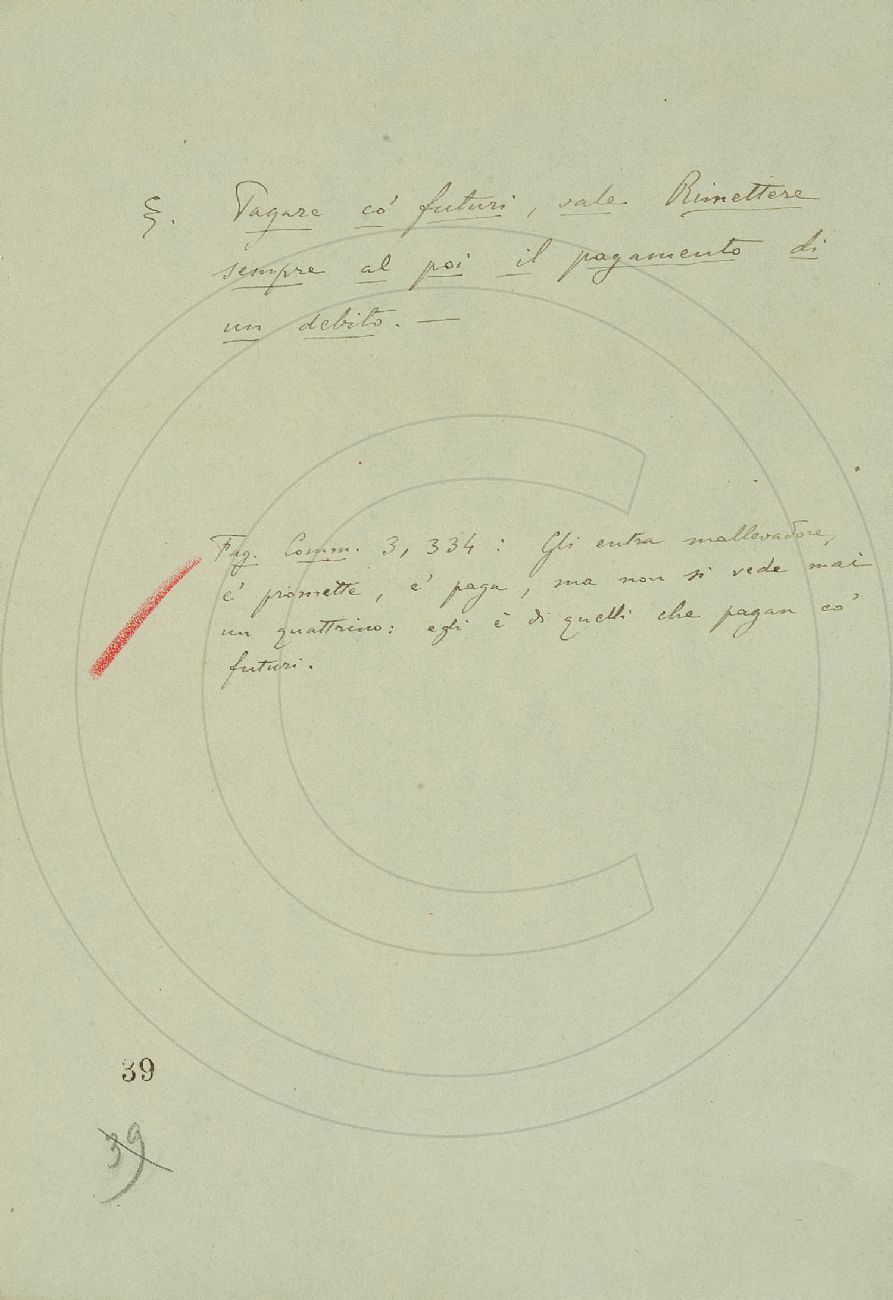 §. Pagare co' futuri, vale Rimettere
sempre al poi il pagamento di
un debito. —
Fag. Comm. 3, 334: Gli entra mallevadore,
e' promette, e' paga, ma non si vede mai
un quattrino: egli è di quelli che pagan co'
futuri.
39
39